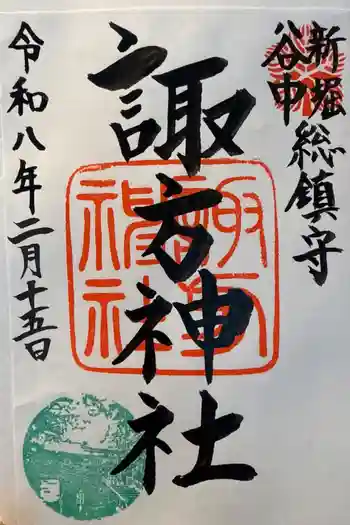 新堀
谷中
総鎮守
諏方神社
令和八年二月十五日